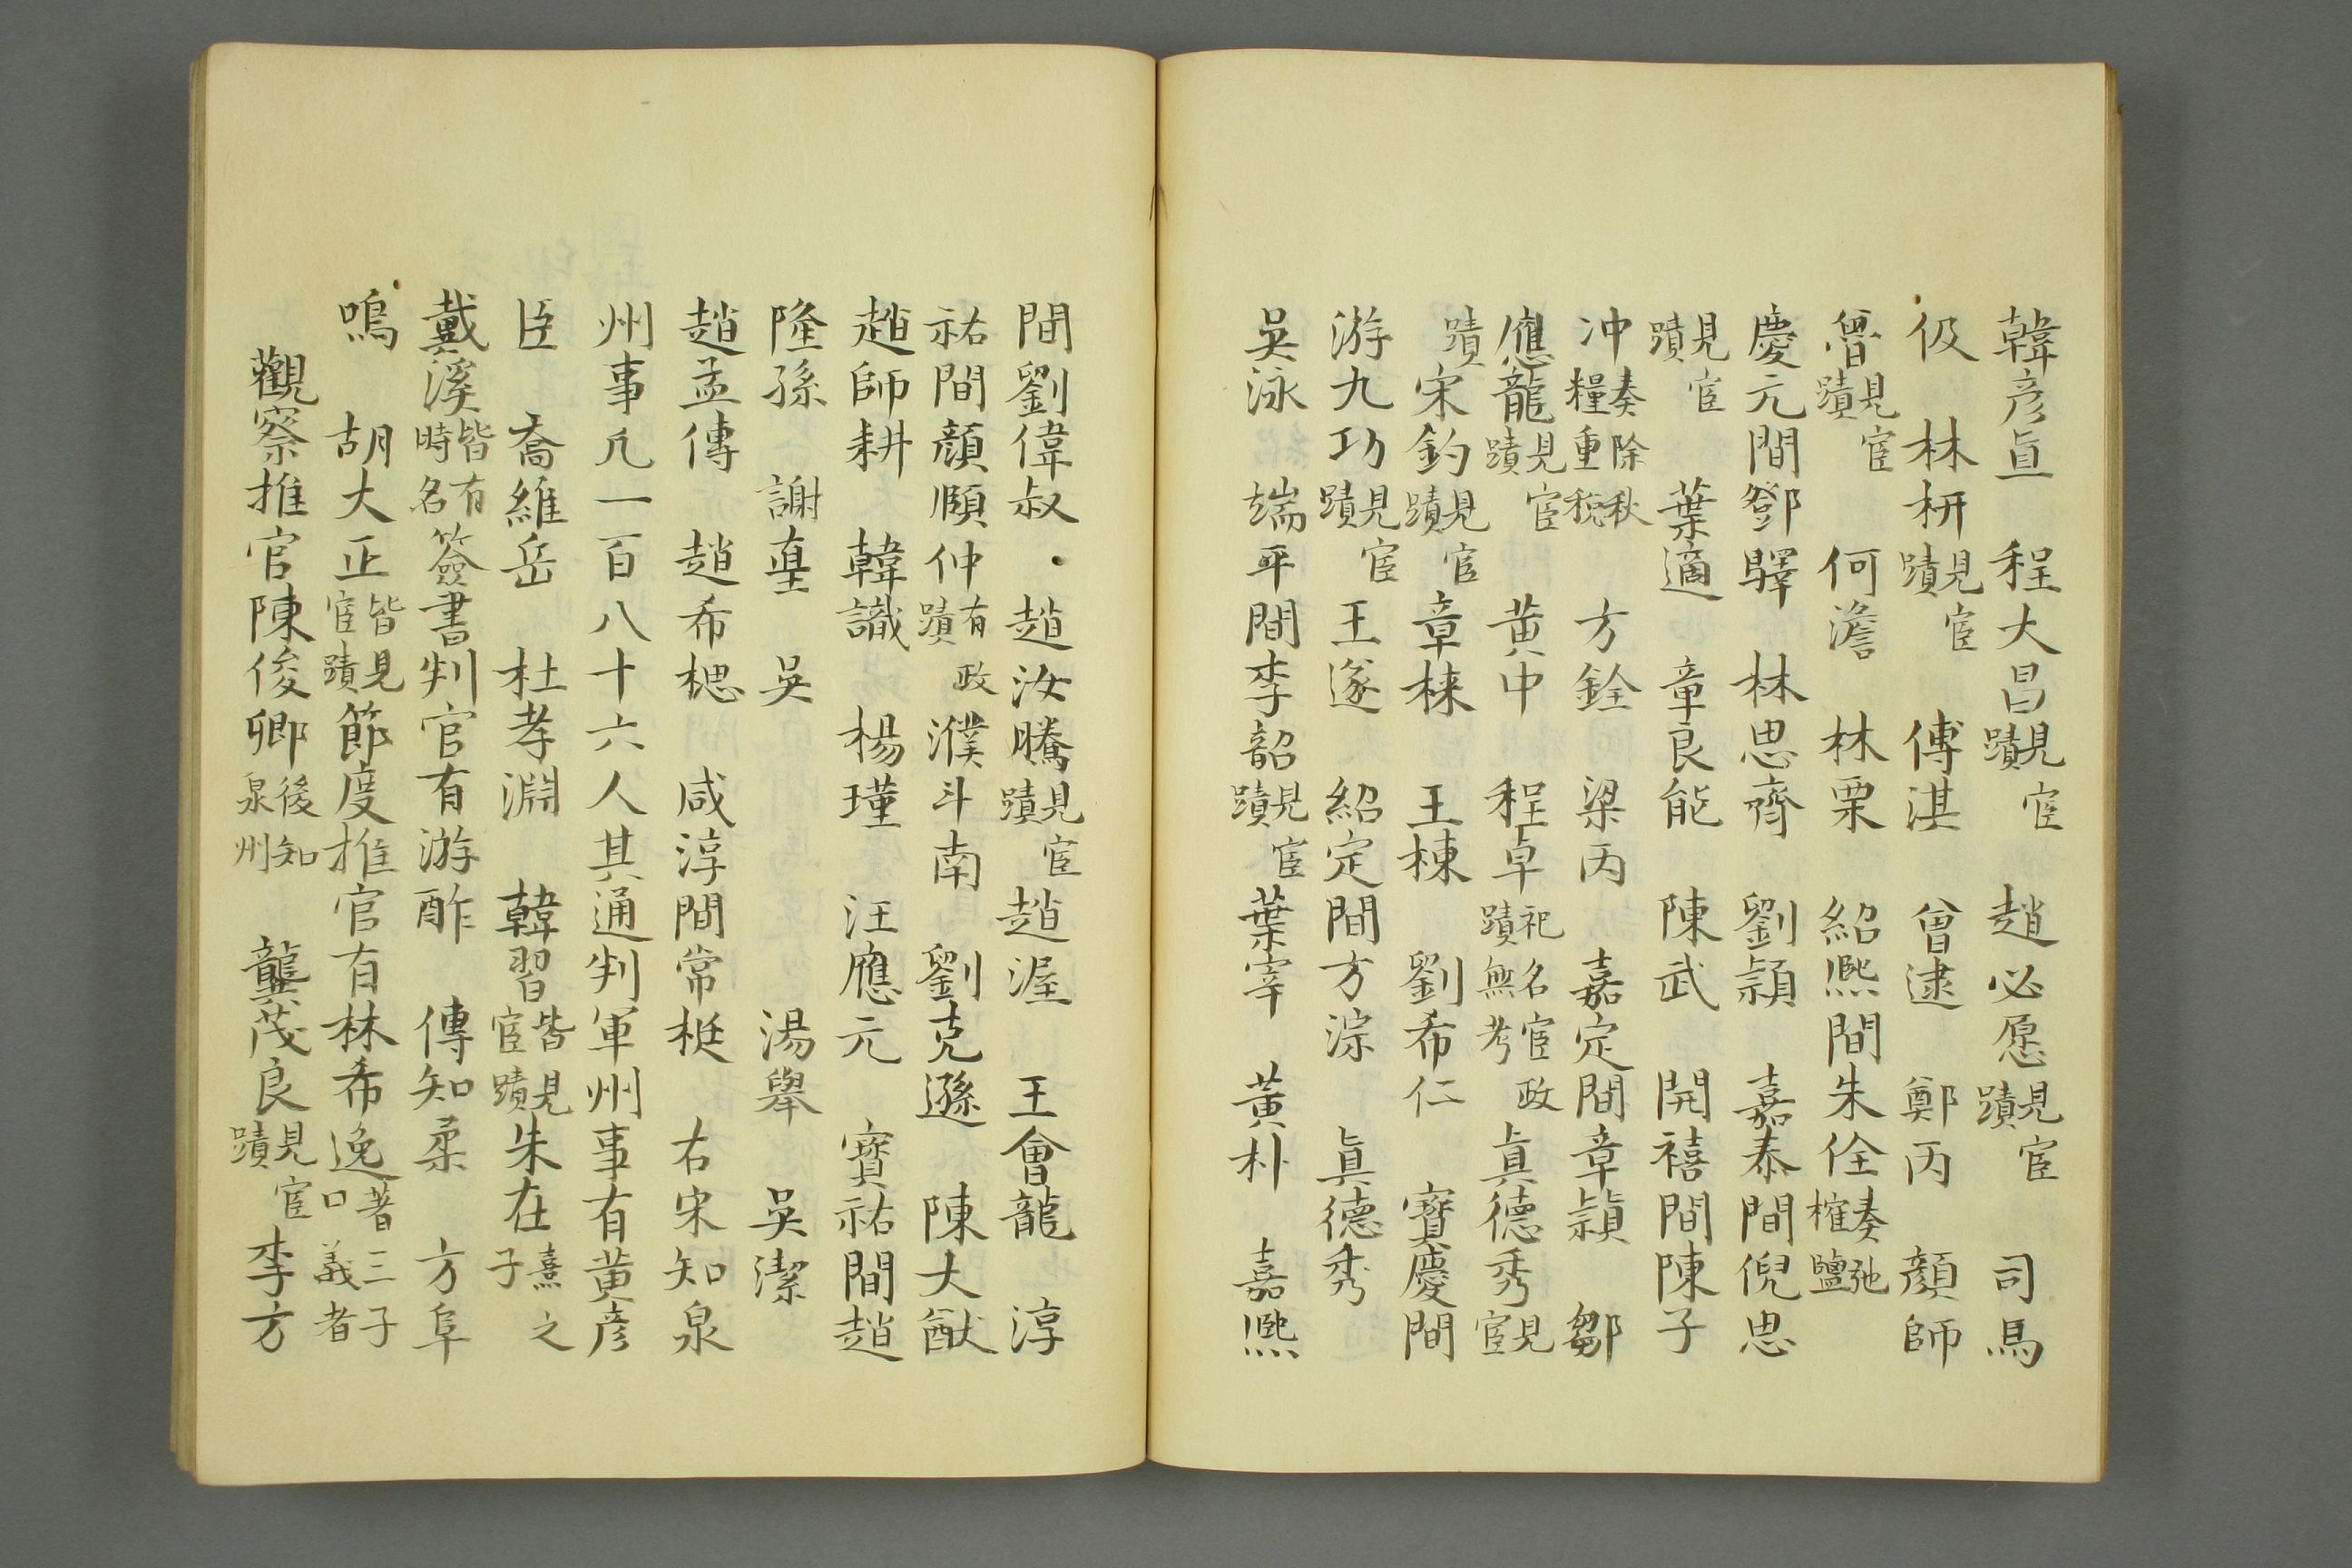 韓彥直　程大昌見宦蹟　趙必愿見宦蹟　司馬
伋　林枅見宦蹟　傅淇　曾逮　鄭丙　顏師
魯見宦蹟　何澹　林栗　紹熙間朱佺奏弛榷鹽
慶元間鄧驛　林思齊　劉頴　嘉泰間倪思
見宦蹟　葉適　章良能　陳武　開禧間陳子
冲奏除秋糧重稅　方銓　梁丙　嘉定間章頴　鄒
應龍見宦蹟　黄中　程卓祀名宦政蹟無考　真德秀見宦
蹟　宋鈞見宦蹟　章棶　王棟　劉希仁　寶慶間
游九功見宦蹟　王遂　紹定間方淙　真德秀
吳泳　端平間李韶見宦蹟　葉宰　黃朴　嘉熙
間劉偉叔・趙汝騰見宦蹟　趙渥　王會龍　淳
祐間顏頤仲有政蹟　濮斗南　劉克遜　陳大猷
趙師耕　韓識　楊瑾　汪應元　寶祐間趙
隆孫　謝𡌴　吳　湯舉　吳潔
趙孟傳　趙希楒　咸淳間常梃　右宋知泉
州事凡一百八十六人其通判軍州事有黄彥
臣　喬維岳　杜孝淵　韓習皆見宦蹟　朱在熹之子
戴溪皆有時名　簽書判官有游酢　傅知柔　方阜
鳴　胡大正皆見宦蹟　節度推官有林希逸著三子口義者
觀察推官陳俊卿後知泉州　龔茂良見宦蹟　李方